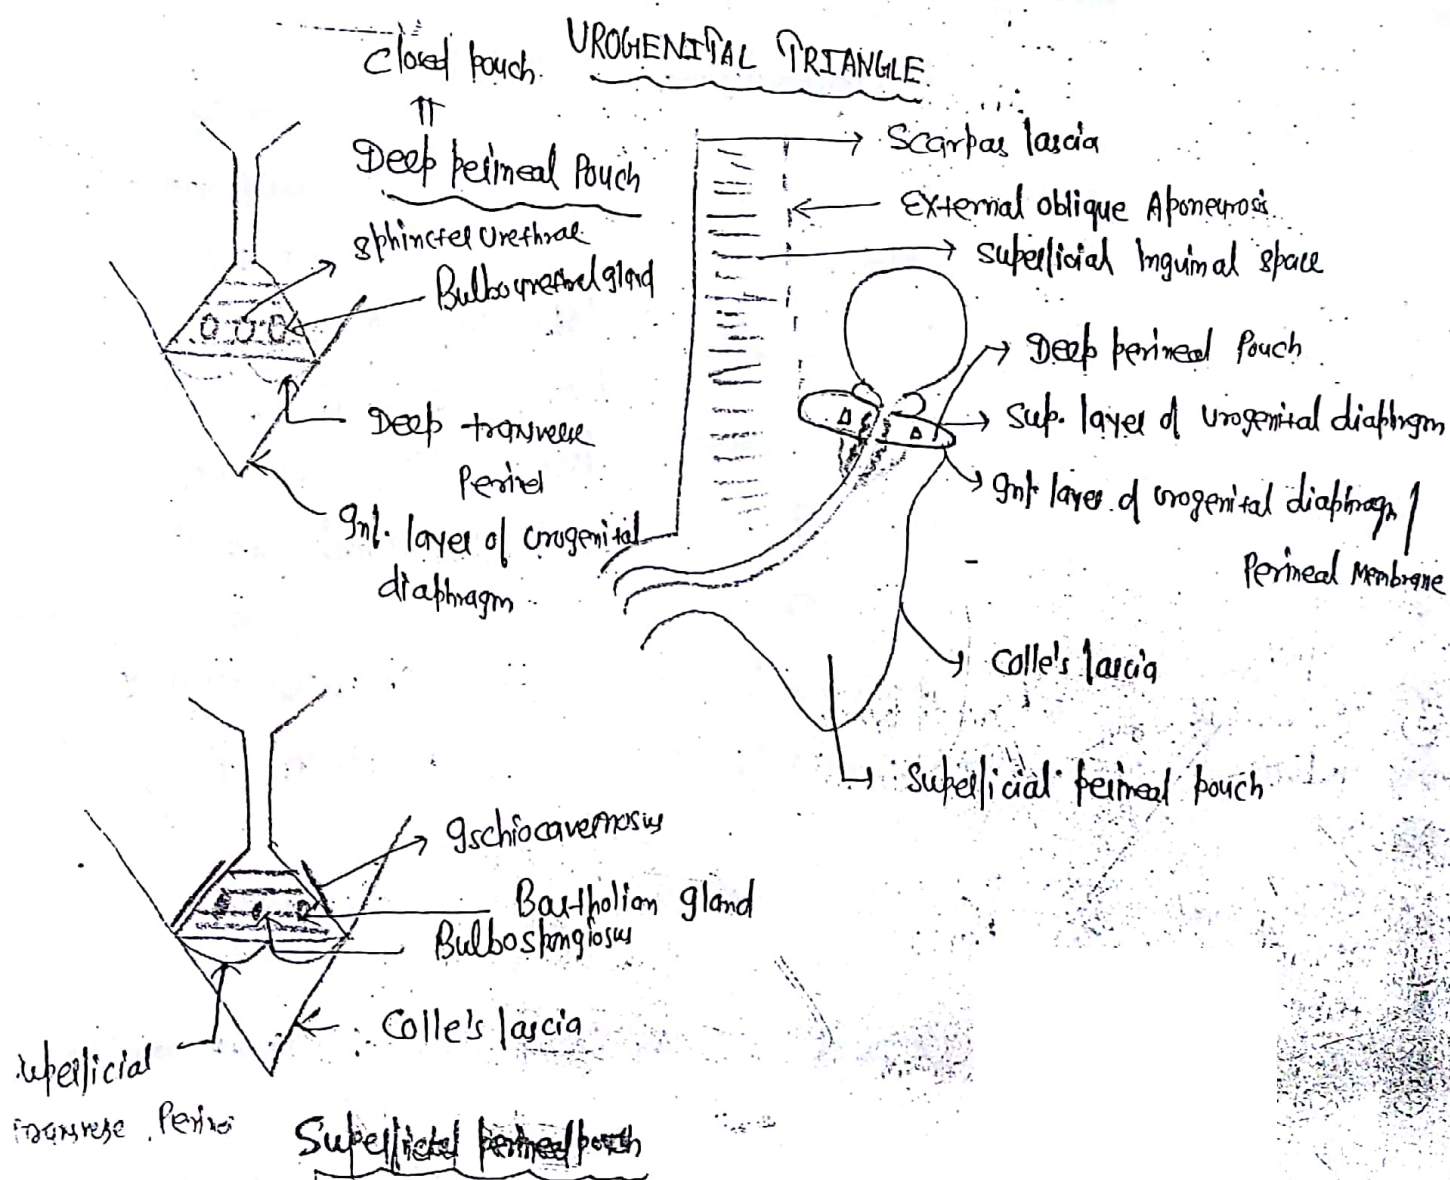 UROGENITAL TRIANGLE
Closed pouch
Deep perineal Pouch
Sphincter urethrae
Bulbourethral gland
Deep transverse
Perinei
Inf. layer of urogenital
diaphragm
Scarpas fascia
External oblique Aponeurosis
Superficial Inguinal space
Deep perineal Pouch
Sup. layer of urogenital diaphragm
Inf. layer of urogenital diaphragm /
Perineal Membrane
Colle's fascia
Superficial perineal pouch
Ischiocavernosus
Bartholian gland
Bulbospongiosus
Colle's fascia
uperficial
Transverse Perinei
Superficial perineal pouch